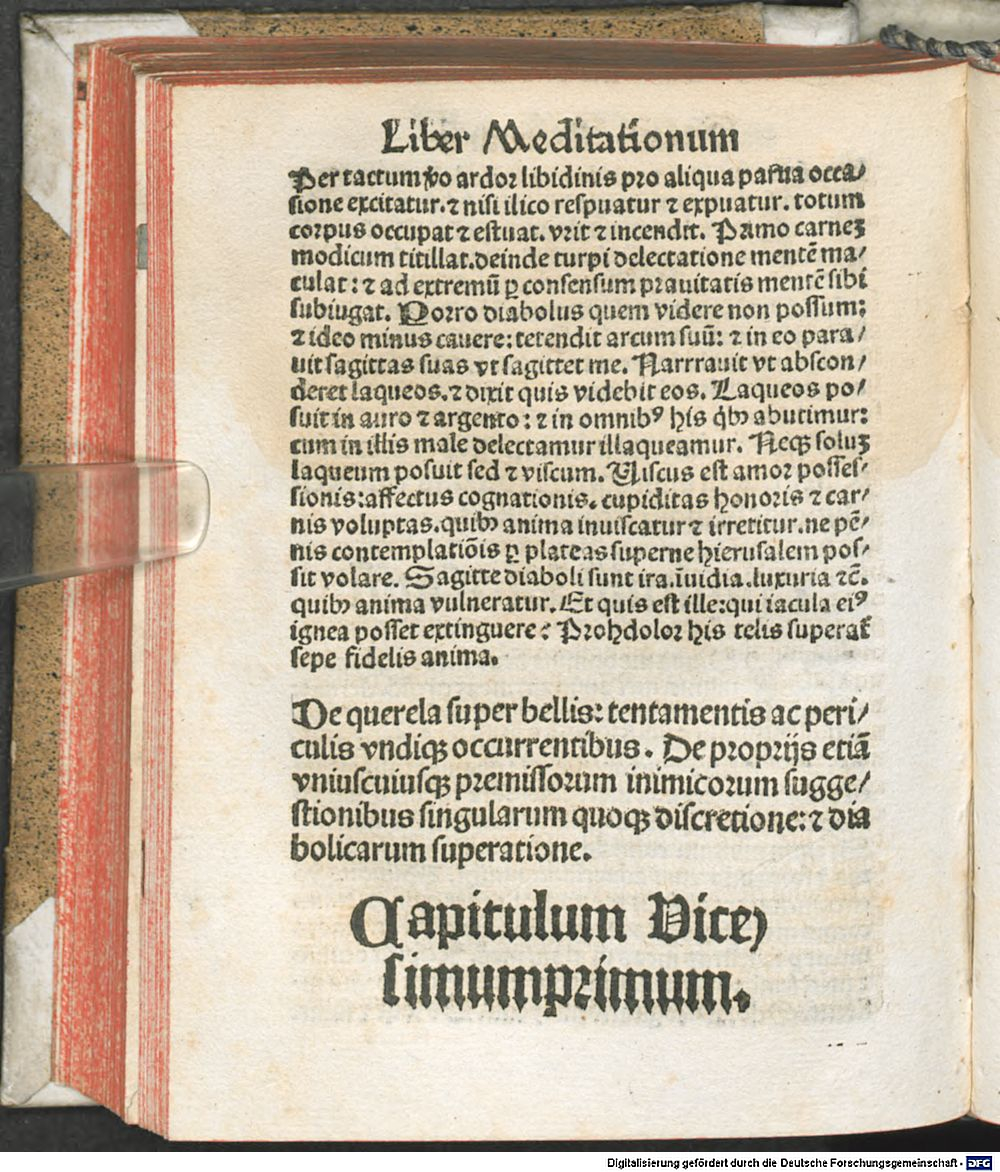 Liber Meditationum
Per tactum v̄o ardor libidinis pro aliqua parua occa/
sione excitatur. ⁊ nisi ilico respuatur ⁊ expuatur. totum
corpus occupat ⁊ estuat. vrit ⁊ incendit. Primo carneꝫ
modicum titillat. deinde turpi delectatione mentē ma/
culat: ⁊ ad extremū ꝑ consensum prauitatis mentē sibi
subiugat. Porro diabolus quem videre non possum:
⁊ ideo minus cauere: tetendit arcum suū: ⁊ in eo para/
uit sagittas suas vt sagittet me. Narrrauit vt abscon/
deret laqueos. ⁊ dixit quis videbit eos. Laqueos po/
suit in auro ⁊ argento: ⁊ in omnibꝰ his qͥbꝫ abutimur:
cum in illis male delectamur illaqueamur. Neqꝫ soluꝫ
laqueum posuit sed ⁊ viscum. Viscus est amor posses/
sionis: affectus cognationis. cupiditas honoris ⁊ car/
nis voluptas. quibꝫ anima inuiscatur ⁊ irretitur. ne pē/
nis contemplatiōis ꝑ plateas superne hierusalem pos/
sit volare. Sagitte diaboli sunt ira. īuidia. luxuria ⁊c̄.
quibꝫ anima vulneratur. Et quis est ille: qui iacula eiꝰ
ignea posset extinguere? Prohdolor his telis superat᷑
sepe fidelis anima.
De querela super bellis: tentamentis ac peri/
culis vndiqꝫ occurrentibus. De proprijs etiā
vniuscuiusqꝫ premissorum inimicorum sugge/
stionibus singularum quoqꝫ discretione: ⁊ dia
bolicarum superatione.
Capitulum Vice/
simumprimum.
Digitalisierung gefördert durch die Deutsche Forschungsgemeinschaft - DFG